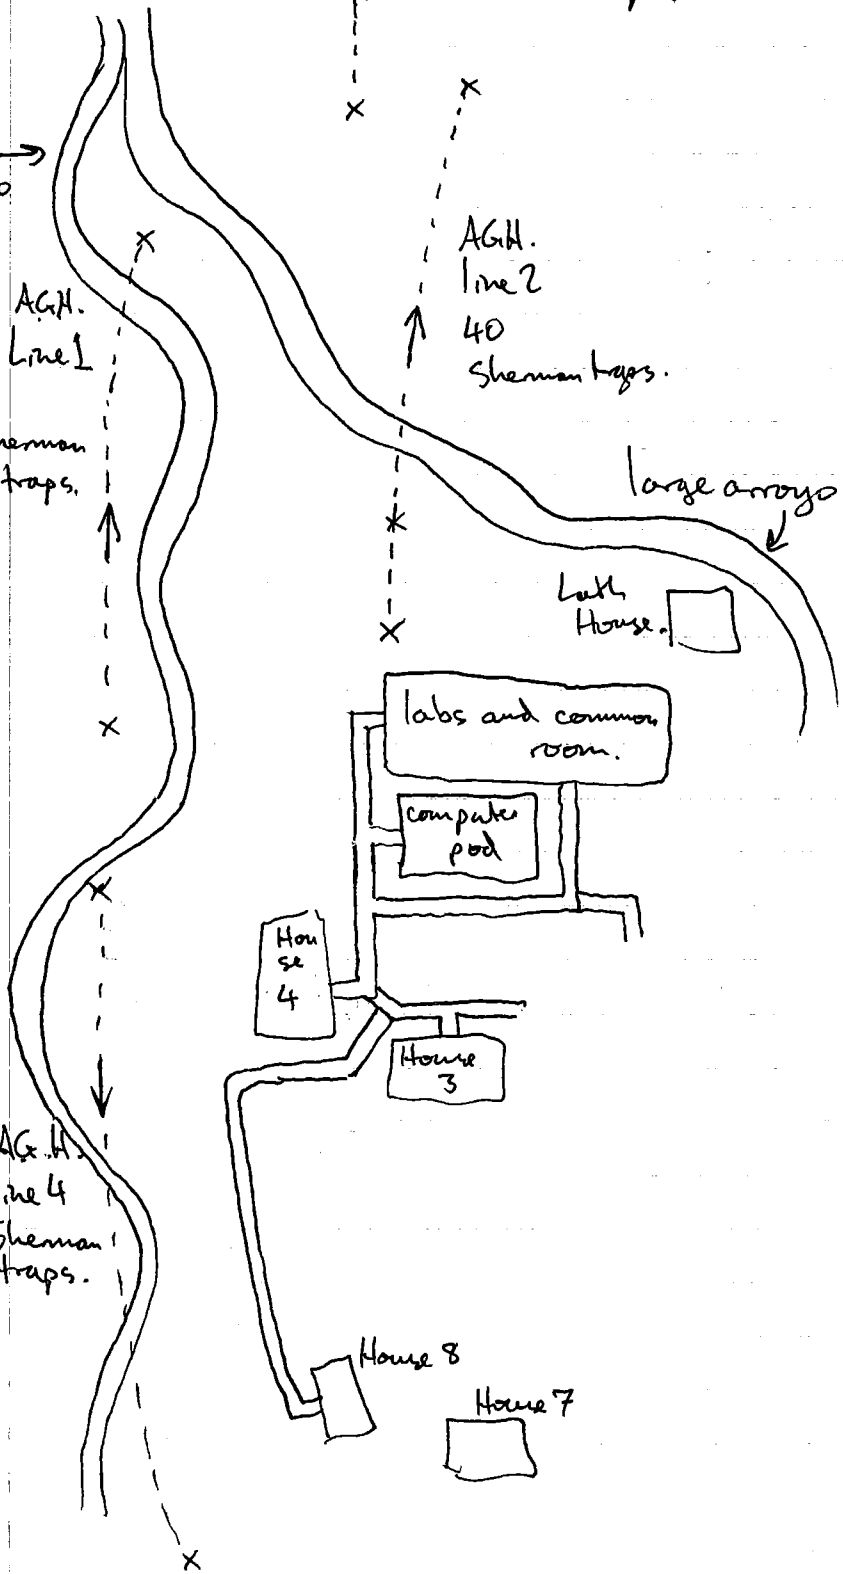 AGH.
line 2
40
Sherman traps.
AGH.
Line 1
traps.
large arroyo
Lath
House.
labs and common
room.
computer
pod
Hou
se
4
House
3
AG.H.
4
Sherman
traps.
House 8
House 7